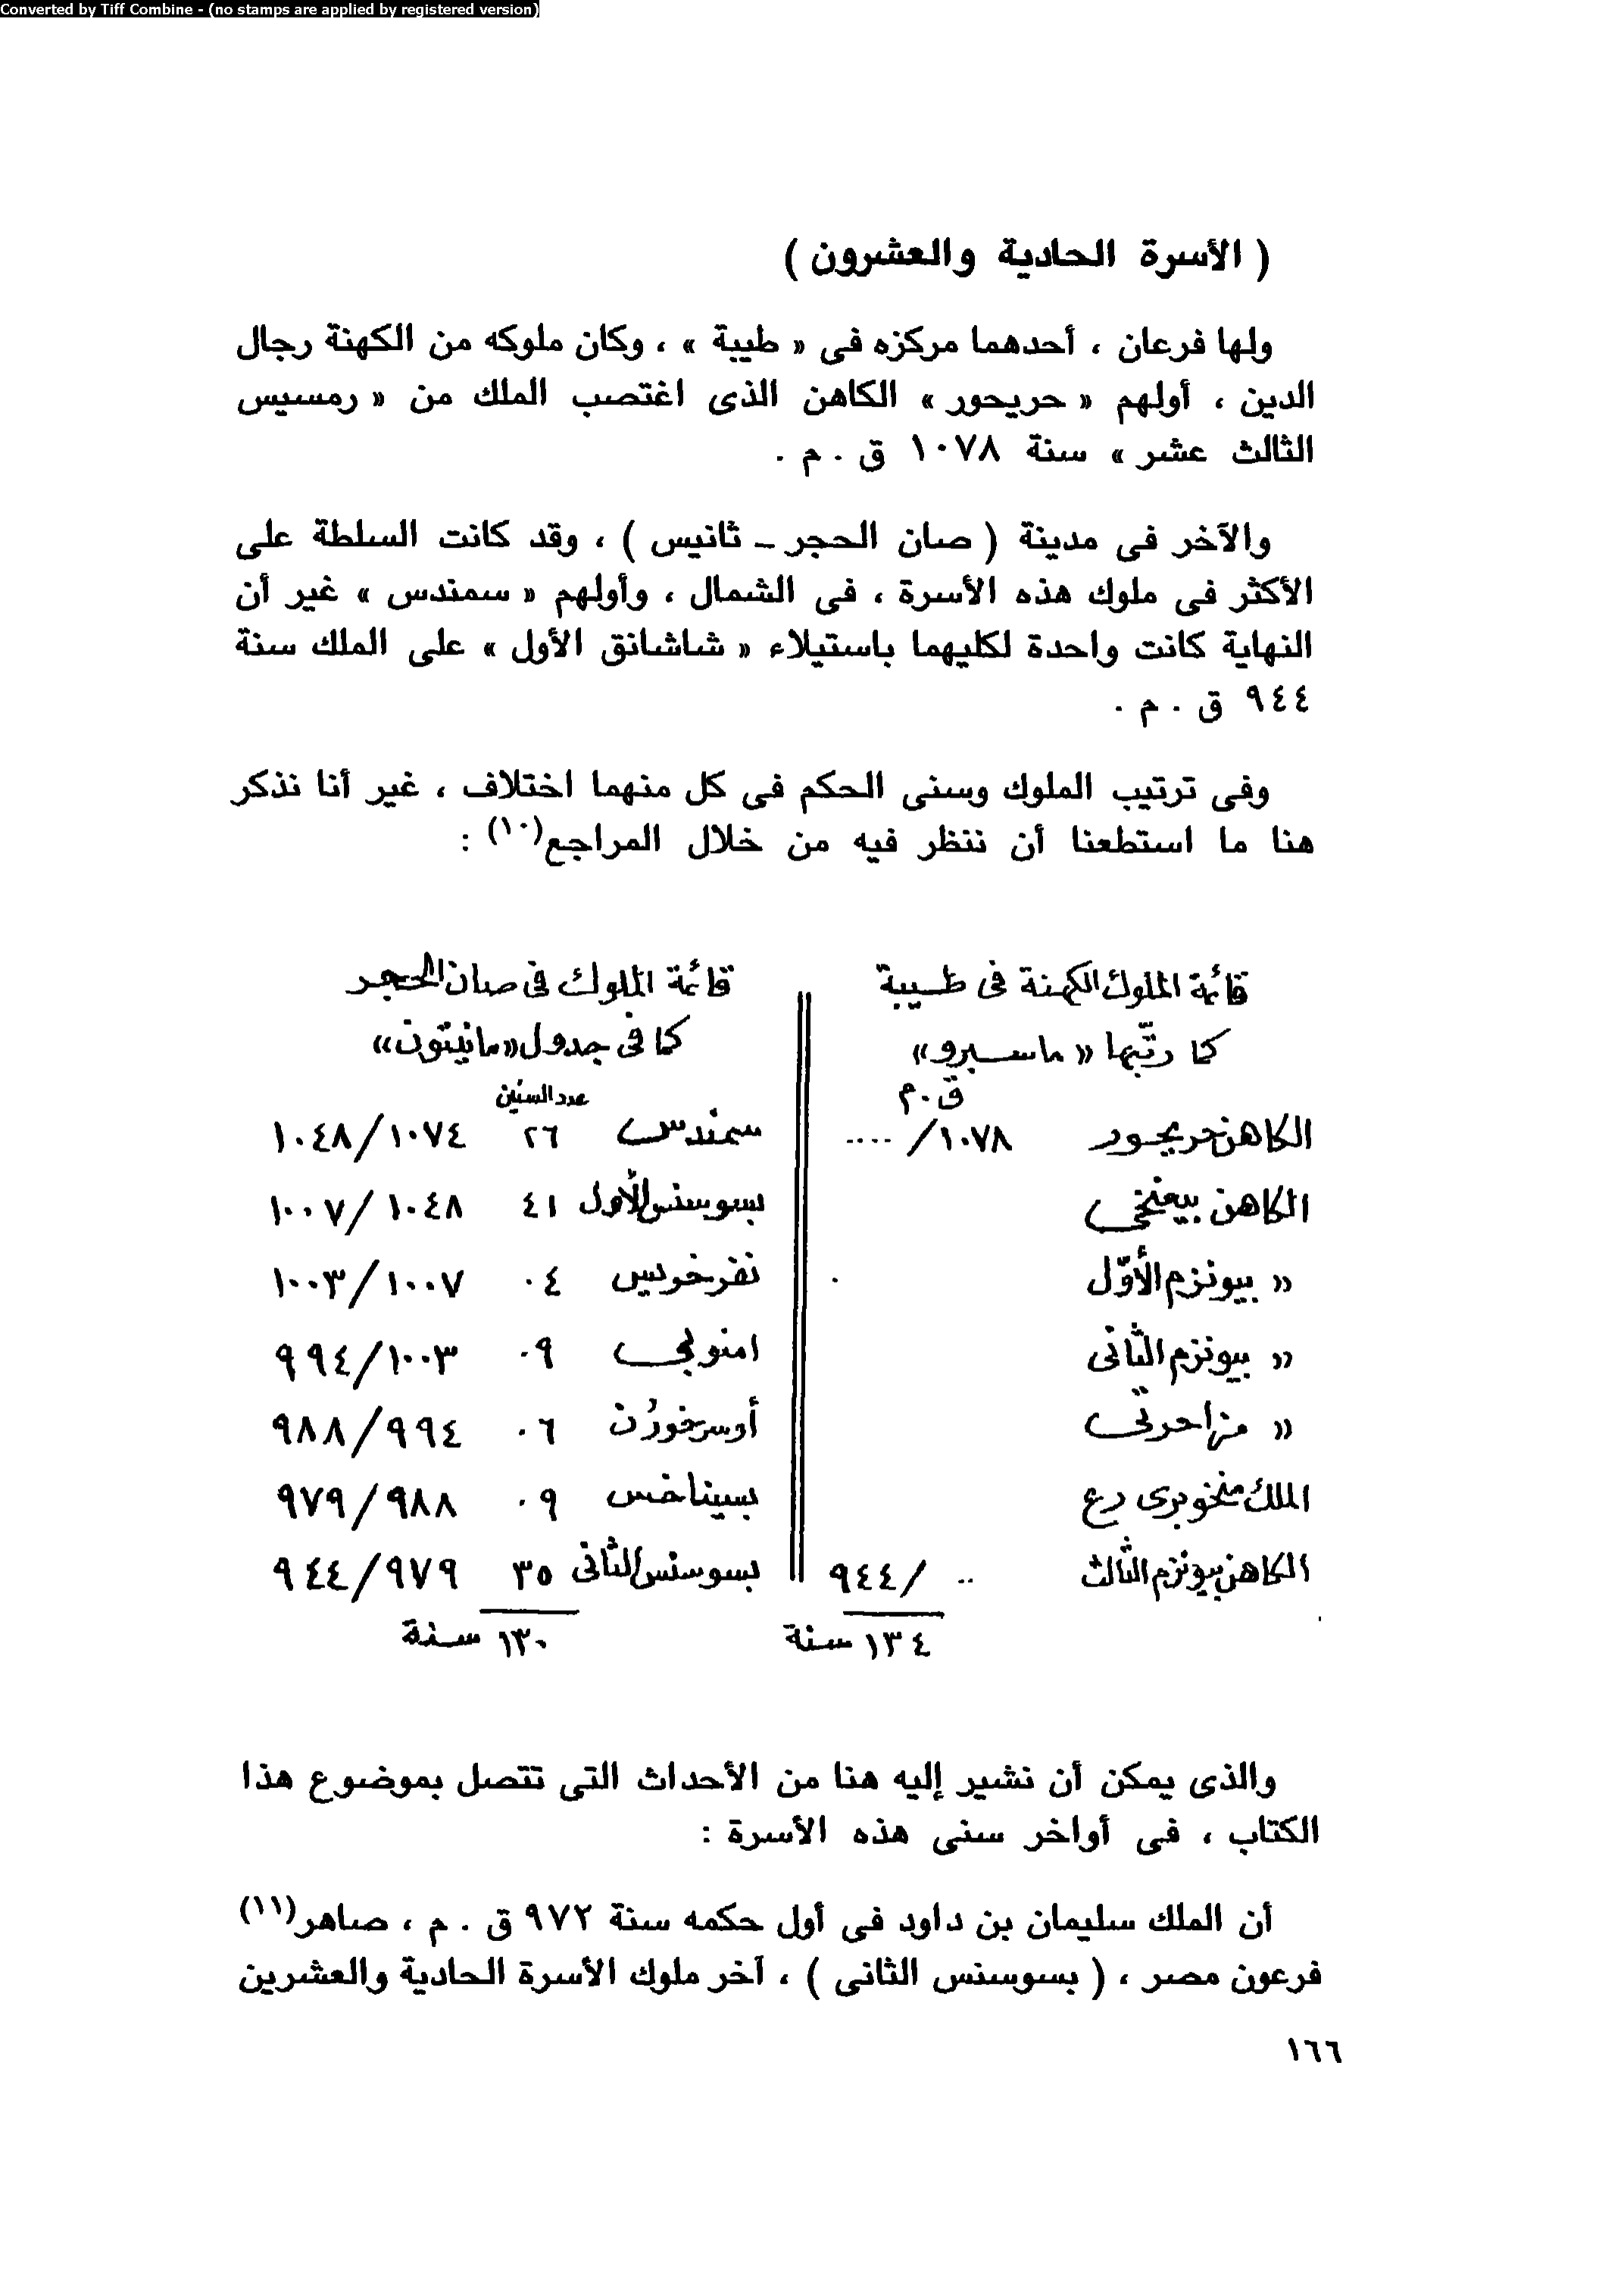 Converted by Tiff Combine - (no stamps are applied by registered version)
( الأسرة الحادية والعشرون )
ولها فرعان ، أحدهما مركزه فى « طيبة » ، وكان ملوكه من الكهنة رجال
الدين ، أولهم « حريحور » الكاهن الذى اغتصب الملك من « رمسيس
الثالث عشر » سنة ١٠٧٨ ق . م .
والآخر فى مدينة ( صان الحجر ــ ثانيس ) ، وقد كانت السلطة على
الأكثر فى ملوك هذه الأسرة ، فى الشمال ، وأولهم « سمندس » غير أن
النهاية كانت واحدة لكليهما باستيلاء « شاشانق الأول » على الملك سنة
٩٤٤ ق . م .
وفى ترتيب الملوك وسنى الحكم فى كل منهما اختلاف ، غير أنا نذكر
هنا ما استطعنا أن ننظر فيه من خلال المراجع(١٠) :
قائمة الملوك الكهنة فى طيبة
كما رتّبها « ماسبرو »
ق.م
الكاهن حريحور ١٠٧٨/ ....
الكاهن بيعنخى
« بيونزم الأوّل
« بيونزم الثانى
« مزاحرتى
الملك منخوبرى رع
الكاهن بيونزم الثالث .. /٩٤٤
١٣٤ سنة
قائمة الملوك فى صان الحجر
كما فى جدول « مانيتون »
عدد السنين
سمندس ٢٦ ١٠٧٤/١٠٤٨
بسوسنس الأول ٤١ ١٠٤٨/١٠٠٧
نفرخرس ٠٤ ١٠٠٧/١٠٠٣
امنوبى ٠٩ ١٠٠٣/٩٩٤
أوسرخورن ٠٦ ٩٩٤/٩٨٨
بسيناخس ٠٩ ٩٨٨/٩٧٩
بسوسنس الثانى ٣٥ ٩٧٩/٩٤٤
١٣٠ سنة
والذى يمكن أن نشير إليه هنا من الأحداث التى تتصل بموضوع هذا
الكتاب ، فى أواخر سنى هذه الأسرة :
أن الملك سليمان بن داود فى أول حكمه سنة ٩٧٢ ق . م ، صاهر(١١)
فرعون مصر ، ( بسوسنس الثانى ) ، آخر ملوك الأسرة الحادية والعشرين
١٦٦